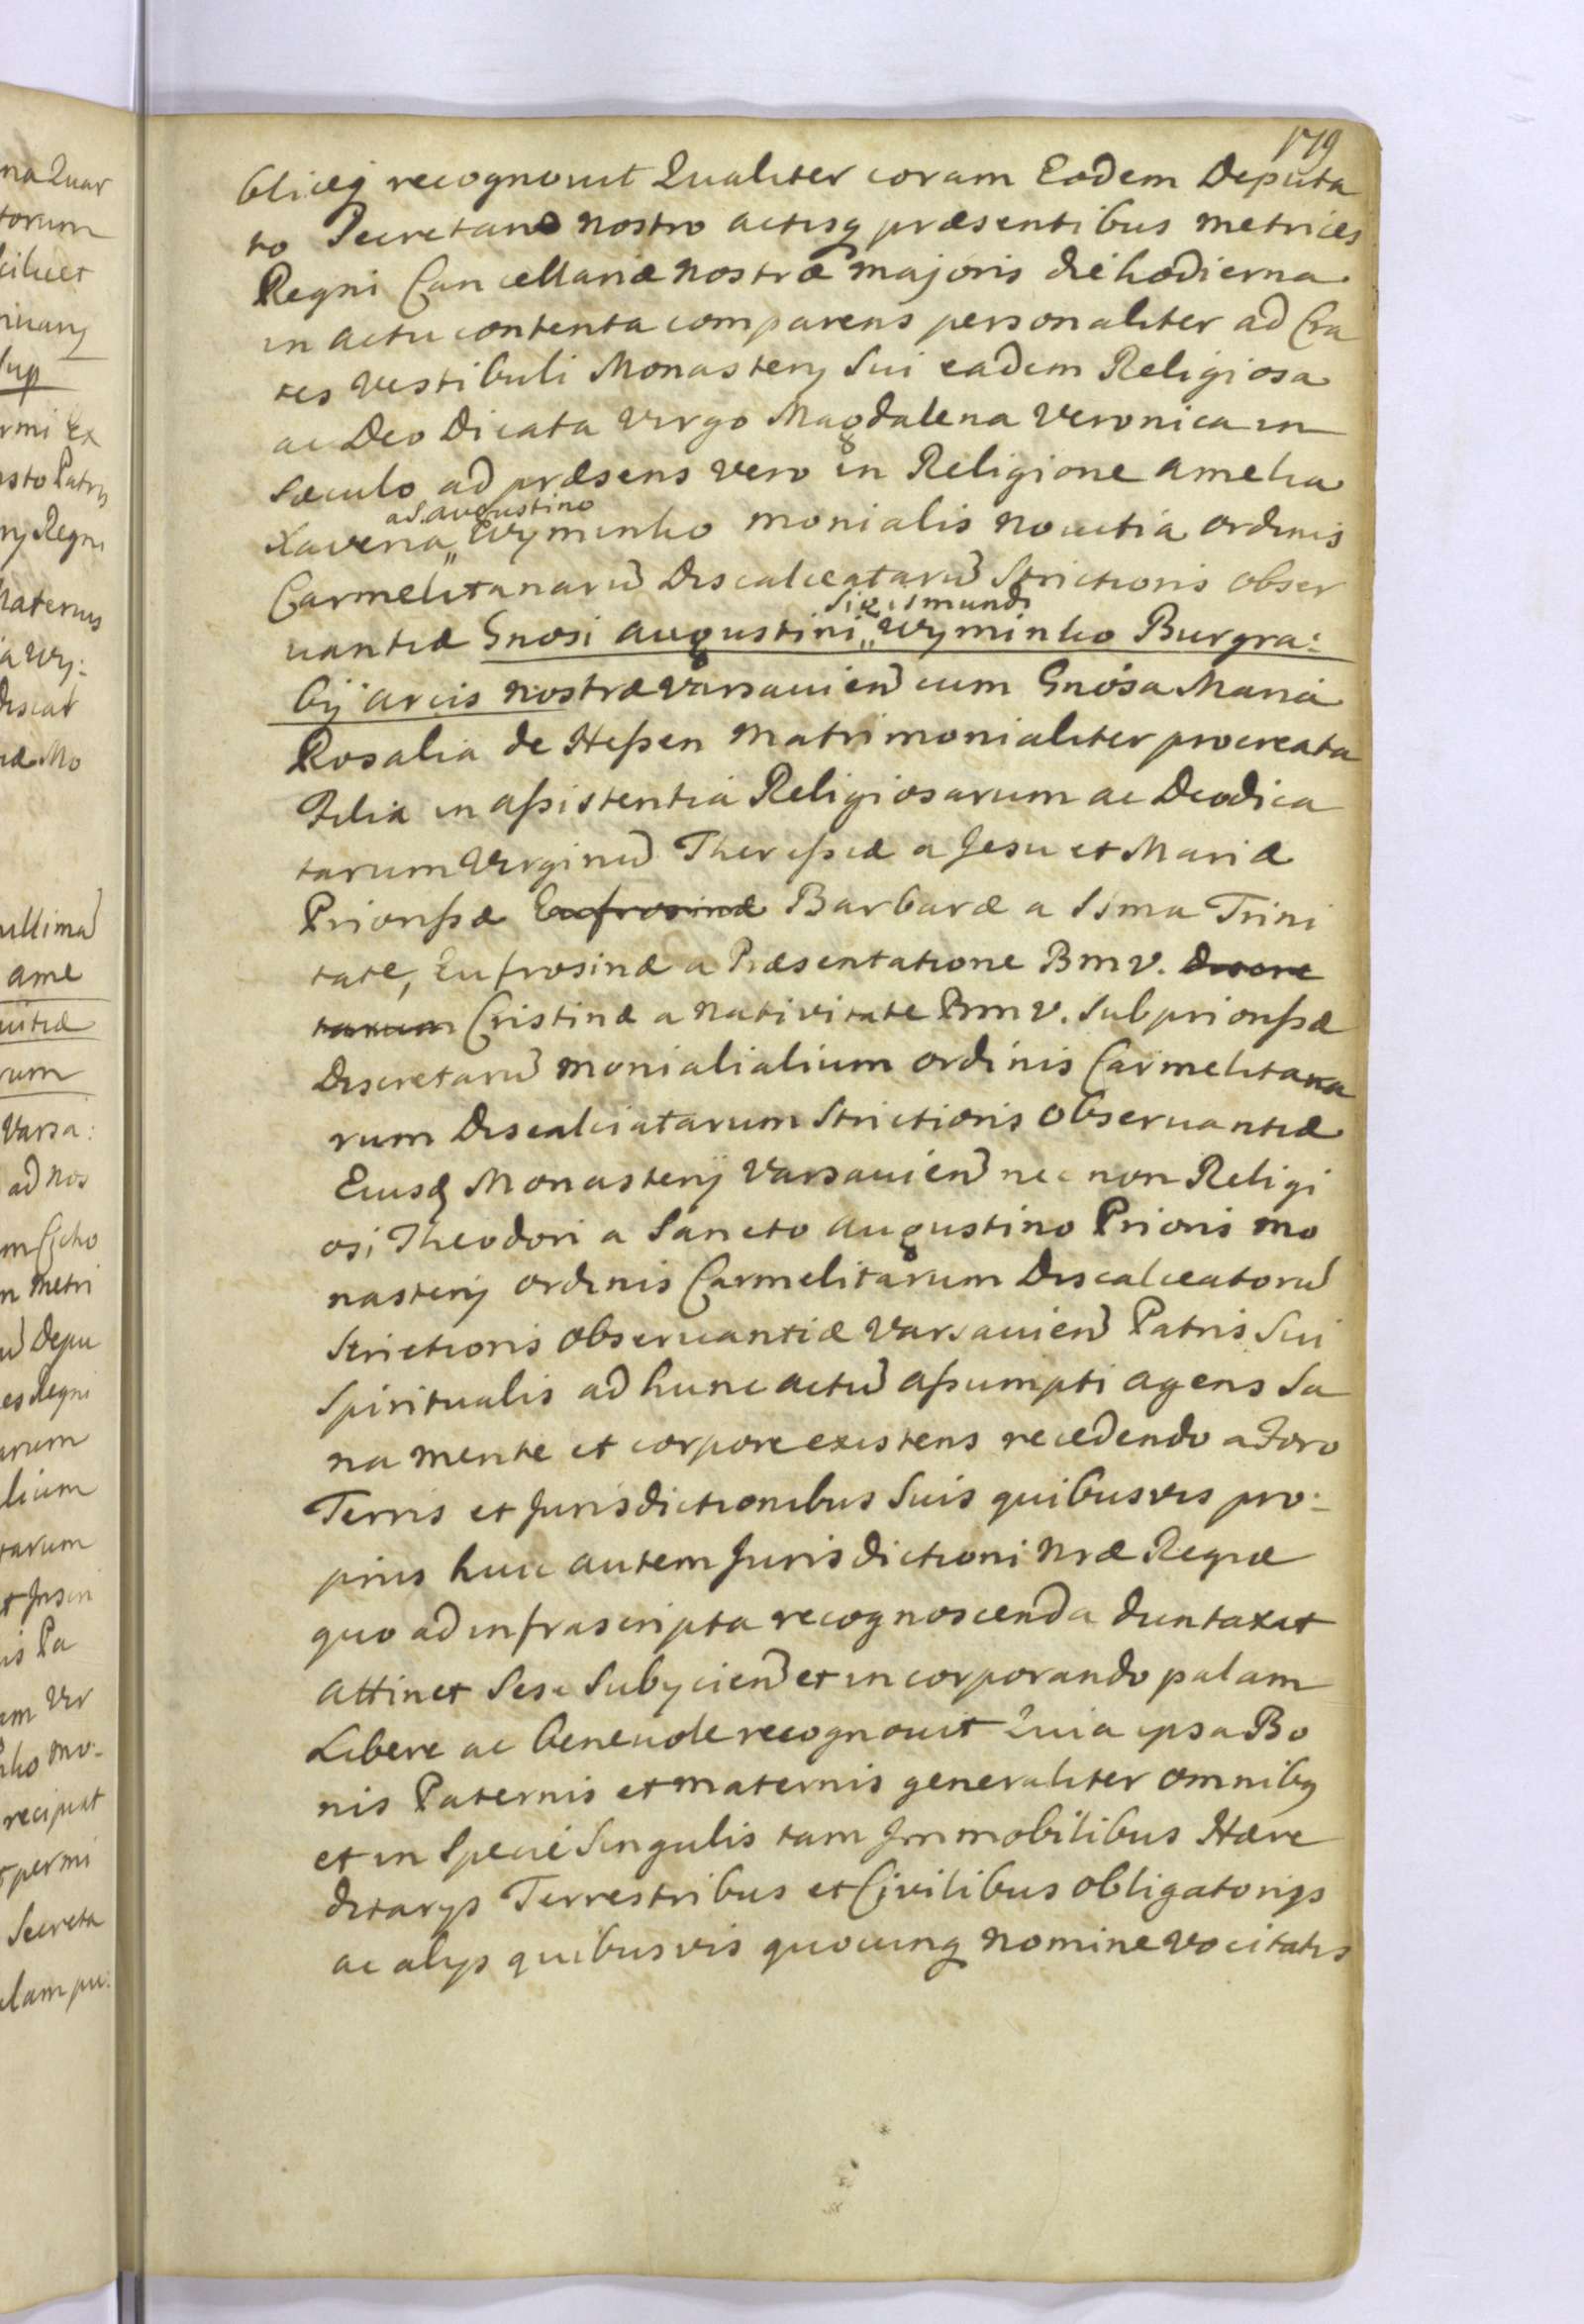 na Quar
torum
cilicet
rmi Ex
ny Regni
Maternis
a Wy:
discat
ullima
ame
uitiæ
rum
Varsa:
ad nos
n Metri
Depu
es Regni
arum
lium
tarum
is Pa
am Vir
recipiat
permi
Secreta
lam pu:
179
bliceq recognouit Qualiter coram Eodem Deputa
to Secretario nostro actisq præsentibus metrices
Regni Cancellariæ nostræ majoris die hodierna
in actu contenta comparens personaliter ad Cra
tes vestibuli Monasterij Sui eadem Religiosa
ac Deo Dicata Virgo Magdalena Veronica in
Sæculo ad præsens vero in Religione Amelia
a S. Augustino
Xaveria „ Wyminko monialis nouitia ordinis
Carmelitanarũ Discalceatarũ Strictioris obser
Sigismundi
uantiæ Gnosi Augustini „ Wyminko Burgra:
bij arcis nostræ Varsauieñ cum Gnosa Maria
Rosalia de Heßen Matrimonialiter procreata
Filia in aßistentia Religiosarum ac Deodica
tarum Virginũ Thereßiæ a Jesu et Mariæ
Priorißæ Eufrosinæ Barbaræ a SSma Trini
tate, Eufrosinæ a Præsentatione Bmv. discre
tarum Cristinæ a Nativitate Bmv. Subpriorißæ
Discretarũ monialialium ordinis Carmelitana
rum Discalciatarum Strictioris Observantiæ
Eiusq Monasterij Varsauieñ nec non Religi
osi Theodori a Sancto Augustino Prioris mo
nasterij ordinis Carmelitarum Discalceatorũ
Strictioris observantiæ Varsauieñ Patris Sui
Spiritualis ad hunc actũ aßumpti agens Sa
na mente et corpore existens recedendo a Foro
Terris et Jurisdictionibus Suis quibusvis pro:
priis huic autem Jurisdictioni Nræ Regiæ
quo ad infrascripta recognoscenda duntaxat
attinet Sese Subijcieñ et incorporando palam
Libere ac beneuole recognouit Quia ipsa Bo
nis Paternis et maternis generaliter omnibq
et in Specie Singulis tam Immobilibus Hære
ditarys Terrestribus et Civilibus obligatorijs
ac alijs quibusvis quocunq nomine vocitatis